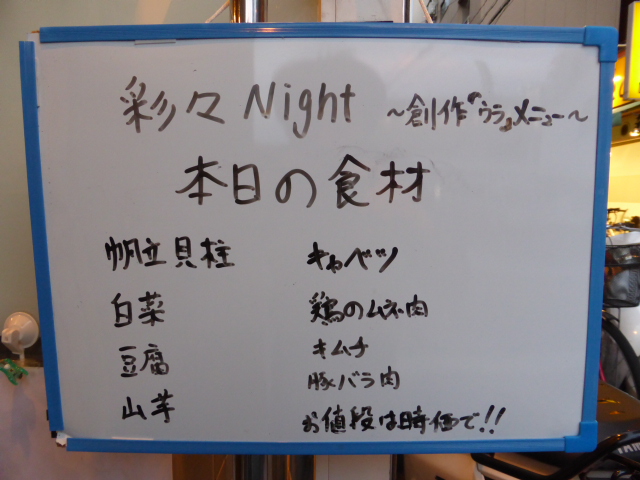 彩々Night ~創作『ウラ』メニュー~
本日の食材
帆立貝柱
白菜
豆腐
山芋
キャベツ
鶏のムネ肉
キムチ
豚バラ肉
お値段は時価で!!